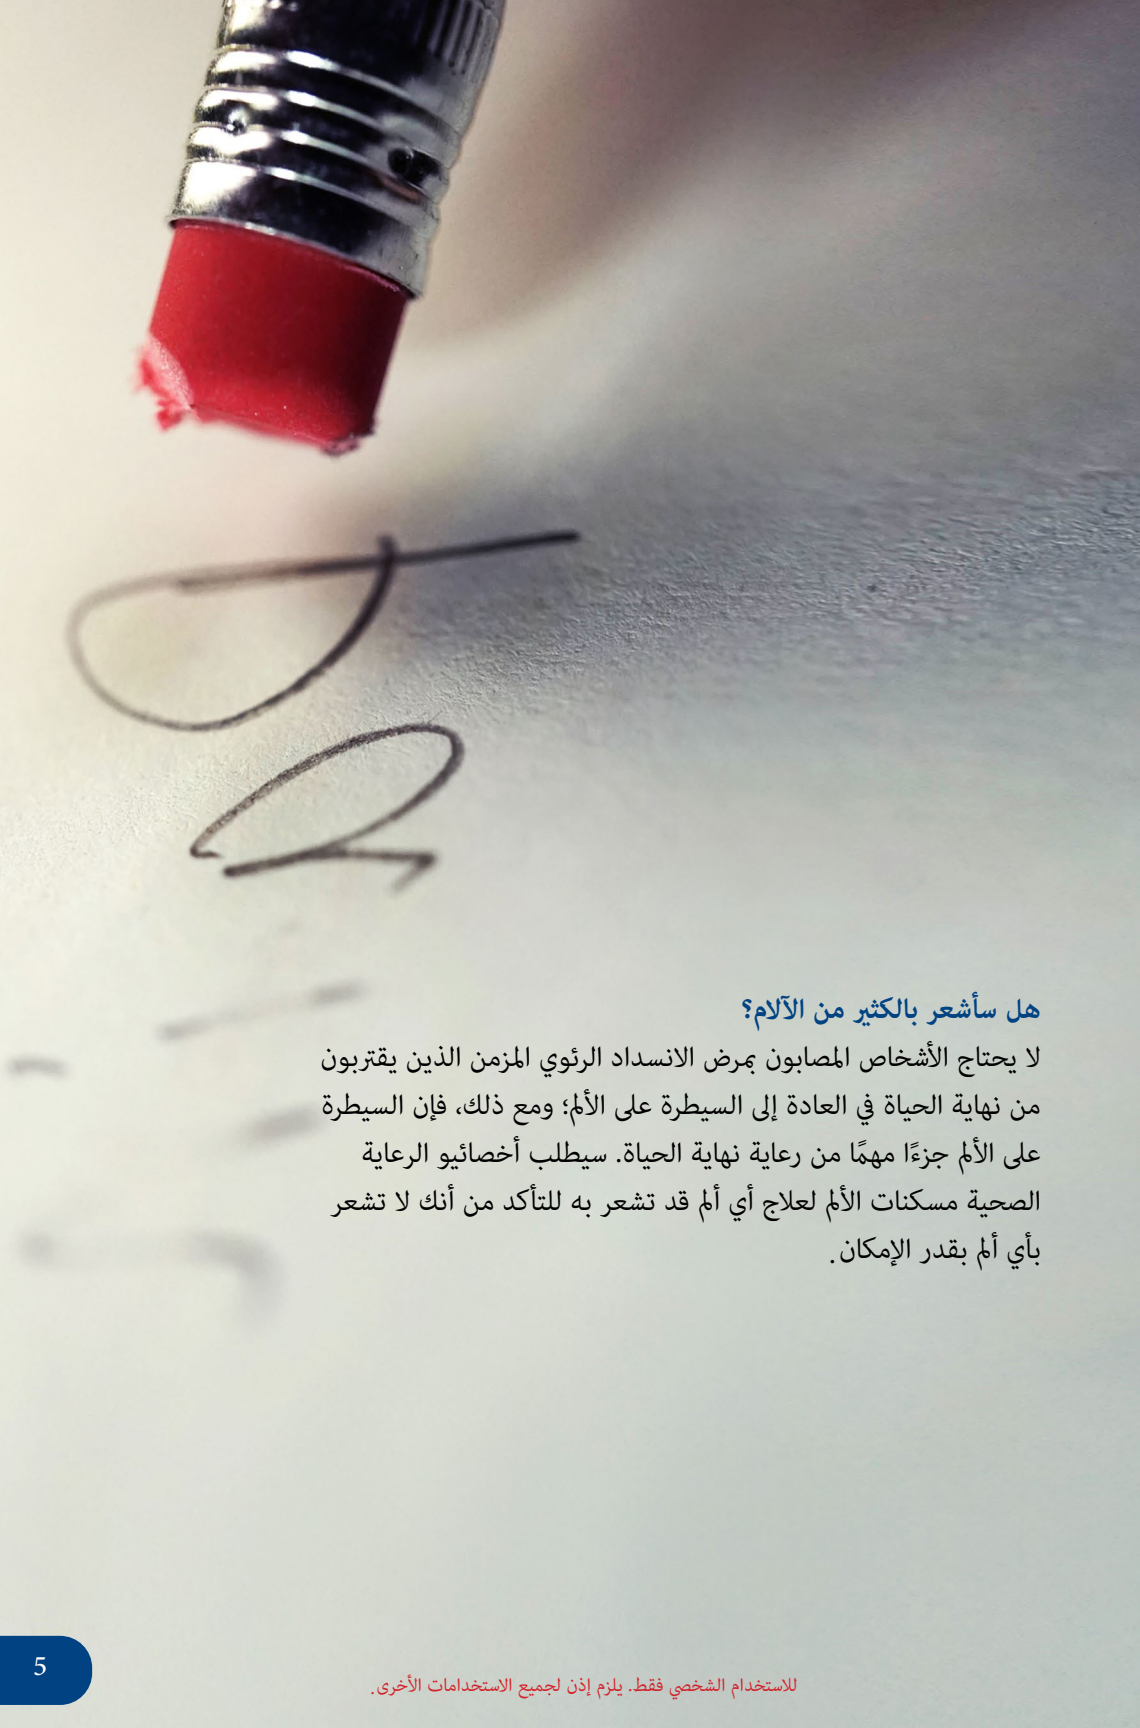 هل سأشعر بالكثير من الآلام؟
لا يحتاج الأشخاص المصابون بمرض الانسداد الرئوي المزمن الذين يقتربون
من نهاية الحياة في العادة إلى السيطرة على الألم؛ ومع ذلك، فإن السيطرة
على الألم جزءًا مهمًا من رعاية نهاية الحياة. سيطلب أخصائيو الرعاية
الصحية مسكنات الألم لعلاج أي ألم قد تشعر به للتأكد من أنك لا تشعر
بأي ألم بقدر الإمكان.
5
للاستخدام الشخصي فقط. يلزم إذن لجميع الاستخدامات الأخرى.